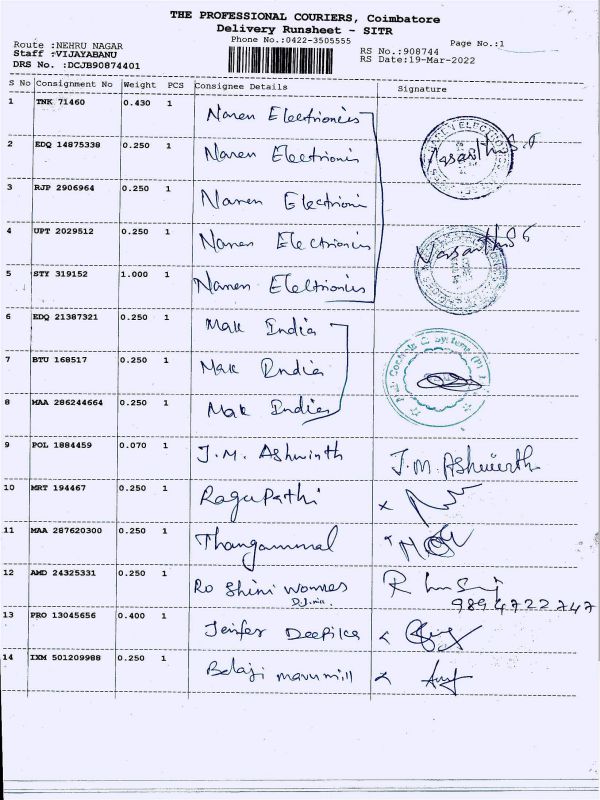 THE PROFESSIONAL COURIERS, Coimbatore
Delivery Runsheet - SITR
Phone No.:0422-3505555
Page No.:1
Route :NEHRU NAGAR
Staff :VIJAYABANU
DRS No. :DCJB90874401
RS No.:908744
RS Date:19-Mar-2022
S No Consignment No Weight PCS Consignee Details Signature
1 TNK 71460 0.430 1 Naren Electrionics
2 EDQ 14875338 0.250 1 Naren Electrionis
3 RJP 2906964 0.250 1 Naren Electrioni
4 UPT 2029512 0.250 1 Naren Electrionics
5 STY 319152 1.000 1 Naren Eleltrionics
6 EDQ 21387321 0.250 1 Mak India
7 BTU 168517 0.250 1 Mak India
8 MAA 286244664 0.250 1 Mak India
9 POL 1884459 0.070 1 J.M. Ashwinth J.M. Ashwinth
10 MRT 194467 0.250 1 Ragupathi
11 MAA 287620300 0.250 1 Thangammal
12 AMD 24325331 0.250 1 Ro Shini Womnes
9894722747
13 PRO 13045656 0.400 1 Jenifer Deepika
14 IXM 501209988 0.250 1 Balaji mavu mill